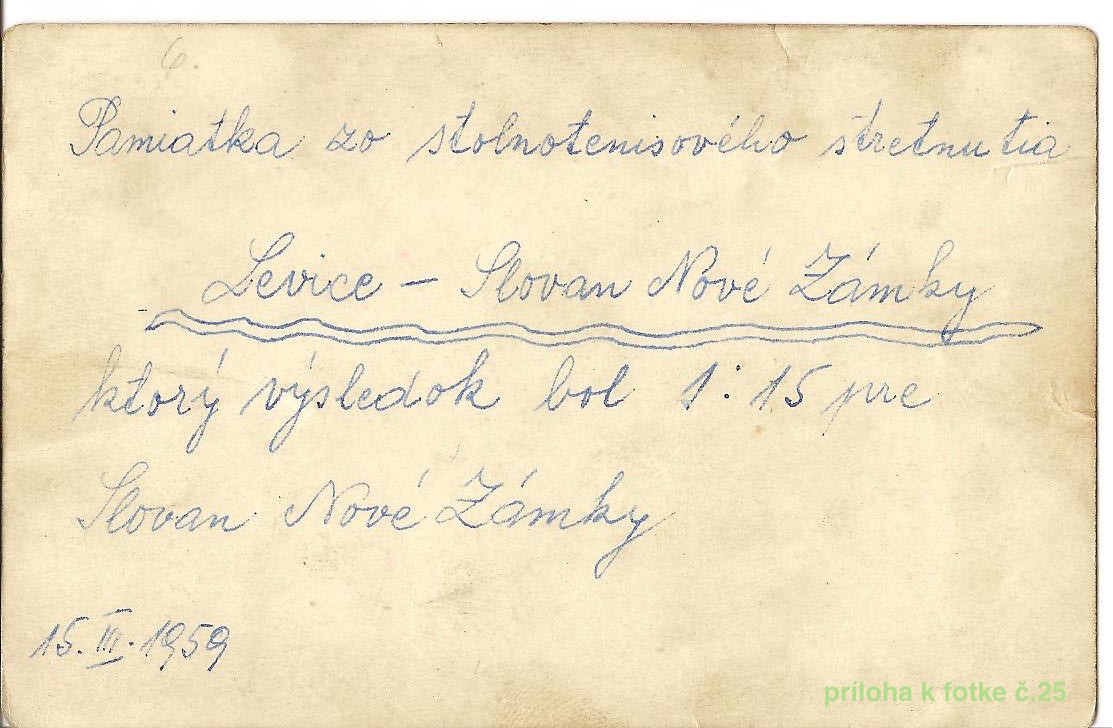 6.
Pamiatka zo stolnotenisového stretnutia
Levice – Slovan Nové Zámky
ktorý výsledok bol 1:15 pre
Slovan Nové Zámky
15. III. 1959
príloha k fotke č.25